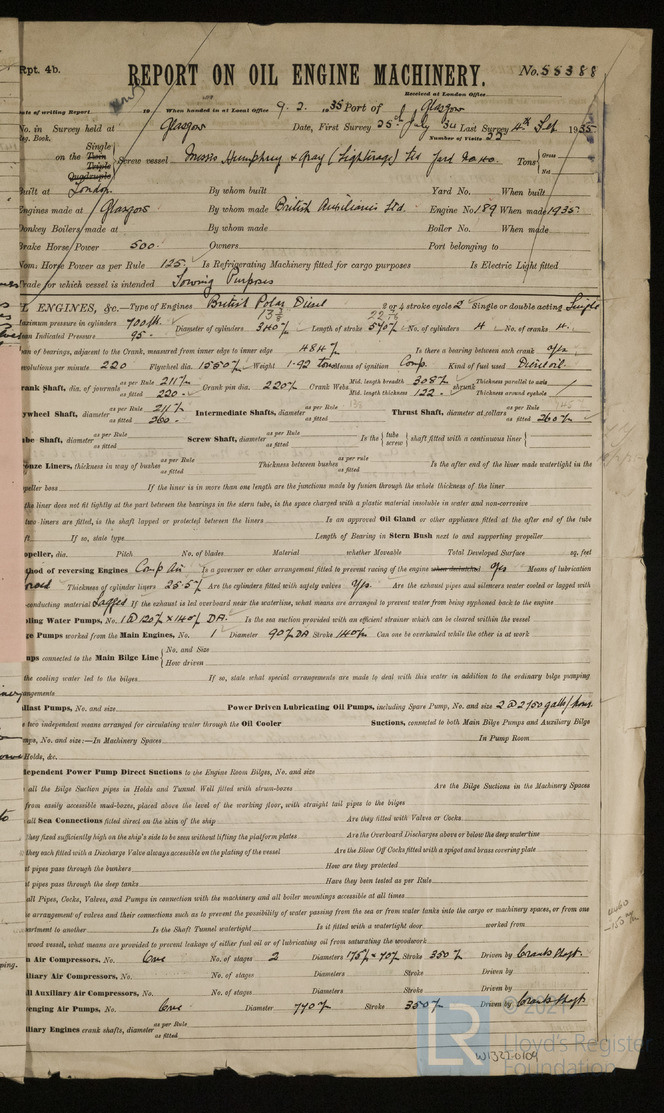 Rpt. 4b.
REPORT ON OIL ENGINE MACHINERY.
No. 55388
Received at London Office
Date of writing Report 19 When handed in at Local Office 9. 2. 1935 Port of Glasgow
No. in Survey held at Glasgow Date, First Survey 25th July 34 Last Survey 4th Feb 1935
Reg. Book. Number of Visits 22
on the Single Twin Triple Quadruple Screw vessel Messrs Humphrey & Gray (Lighterage) Ltd Yard No 40. Tons Gross Net
Built at London. By whom built Yard No. When built
Engines made at Glasgow By whom made British Auxiliaries Ltd. Engine No 189 When made 1935.
Donkey Boilers made at By whom made Boiler No. When made
Brake Horse Power 500. Owners Port belonging to
Nom. Horse Power as per Rule 125. Is Refrigerating Machinery fitted for cargo purposes Is Electric Light fitted
Trade for which vessel is intended Towing Purposes
OIL ENGINES, &c.—Type of Engines British Polar Diesel 2 or 4 stroke cycle 2 Single or double acting Single
Maximum pressure in cylinders 700 lb. Diameter of cylinders 340 Length of stroke 570 No. of cylinders 4 No. of cranks 4.
Mean Indicated Pressure 95.
Span of bearings, adjacent to the Crank, measured from inner edge to inner edge 484 Is there a bearing between each crank Yes.
Revolutions per minute 220 Flywheel dia. 1550 Weight 1.92 tons Means of ignition Comp. Kind of fuel used Diesel oil.
Crank Shaft, dia. of journals as per Rule 211 as fitted 220. Crank pin dia. 220 Crank Webs Mid. length breadth 308 Mid. length thickness 122. shrunk Thickness parallel to axis Thickness around eyehole
Flywheel Shaft, diameter as per Rule 211 as fitted 260. Intermediate Shafts, diameter as per Rule as fitted Thrust Shaft, diameter at collars as per Rule as fitted 260
Tube Shaft, diameter as per Rule as fitted Screw Shaft, diameter as per Rule as fitted Is the tube screw shaft fitted with a continuous liner
Bronze Liners, thickness in way of bushes as per Rule as fitted Thickness between bushes as per rule as fitted Is the after end of the liner made watertight in the
propeller boss If the liner is in more than one length are the junctions made by fusion through the whole thickness of the liner
the liner does not fit tightly at the part between the bearings in the stern tube, is the space charged with a plastic material insoluble in water and non-corrosive
two liners are fitted, is the shaft lapped or protected between the liners Is an approved Oil Gland or other appliance fitted at the after end of the tube
If so, state type Length of Bearing in Stern Bush next to and supporting propeller
Propeller, dia. Pitch No. of blades Material whether Moveable Total Developed Surface sq. feet
Method of reversing Engines Comp Air Is a governor or other arrangement fitted to prevent racing of the engine when declutched Yes Means of lubrication
Forced Thickness of cylinder liners 25.5 Are the cylinders fitted with safety valves Yes. Are the exhaust pipes and silencers water cooled or lagged with
non-conducting material Lagged If the exhaust is led overboard near the waterline, what means are arranged to prevent water from being syphoned back to the engine
Cooling Water Pumps, No. 1 @ 120 × 140 DA. Is the sea suction provided with an efficient strainer which can be cleared within the vessel
Bilge Pumps worked from the Main Engines, No. 1 Diameter 90 DA Stroke 140 Can one be overhauled while the other is at work
Pumps connected to the Main Bilge Line No. and Size How driven
the cooling water led to the bilges If so, state what special arrangements are made to deal with this water in addition to the ordinary bilge pumping
arrangements
Ballast Pumps, No. and size Power Driven Lubricating Oil Pumps, including Spare Pump, No. and size 2 @ 2750 galls/hour.
two independent means arranged for circulating water through the Oil Cooler Suctions, connected to both Main Bilge Pumps and Auxiliary Bilge
Pumps, No. and size:—In Machinery Spaces In Pump Room
Holds, &c.
Independent Power Pump Direct Suctions to the Engine Room Bilges, No. and size
all the Bilge Suction pipes in Holds and Tunnel Well fitted with strum-boxes Are the Bilge Suctions in the Machinery Spaces
from easily accessible mud-boxes, placed above the level of the working floor, with straight tail pipes to the bilges
all Sea Connections fitted direct on the skin of the ship Are they fitted with Valves or Cocks
they fixed sufficiently high on the ship's side to be seen without lifting the platform plates Are the Overboard Discharges above or below the deep waterline
they each fitted with a Discharge Valve always accessible on the plating of the vessel Are the Blow Off Cocks fitted with a spigot and brass covering plate
pipes pass through the bunkers How are they protected
pipes pass through the deep tanks Have they been tested as per Rule
all Pipes, Cocks, Valves, and Pumps in connection with the machinery and all boiler mountings accessible at all times
the arrangement of valves and their connections such as to prevent the possibility of water passing from the sea or from water tanks into the cargo or machinery spaces, or from one
compartment to another Is the Shaft Tunnel watertight Is it fitted with a watertight door worked from
wood vessel, what means are provided to prevent leakage of either fuel oil or of lubricating oil from saturating the woodwork
Main Air Compressors, No. One No. of stages 2 Diameters 175 × 70 Stroke 350 Driven by Crankshaft.
Auxiliary Air Compressors, No. No. of stages Diameters Stroke Driven by
Small Auxiliary Air Compressors, No. No. of stages Diameters Stroke Driven by
Scavenging Air Pumps, No. One Diameter 770 Stroke 350 Driven by Crankshaft
Auxiliary Engines crank shafts, diameter as per Rule as fitted
© 2021
LR
Lloyd's Register
Foundation
W1321-0109